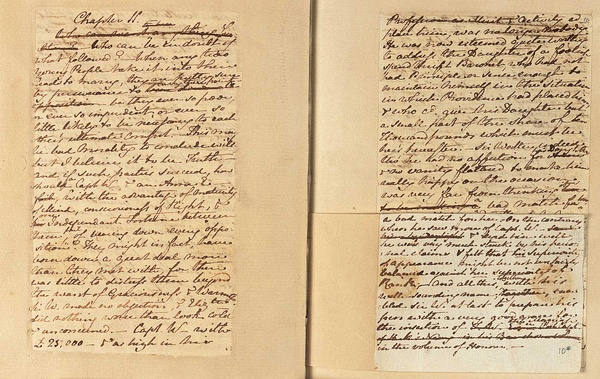 Chapter 11.
Who can be in doubt of
what followed? When any two
Young People take it into their
heads to marry, they are pretty sure
by perseverance to carry their point
be they ever so poor,
or ever so imprudent, or ever so
little likely to be necessary to each
other's ultimate comfort. This may
be bad Morality to conclude with
but I beleive it to be Truth —
and if such parties succeed, how
should a Capt W— & an Anne E—
fail, with the advantage of Maturity
of Mind, consciousness of Right, &
one Independant Fortune between
them, of bearing down every oppo-
sition? They might in fact, have
born down a great deal more
than they met with, for there
was little to distress them beyond
the want of Graciousness & Warmth.
Sir W. made no objection, & Elizth
did nothing worse than look cold
& unconcerned. — Capt W. with
£25,000 — & as high in his
Profession as Merit & Activity cd
place him, was no longer a nobody.
He was now esteemed quite worthy
to address the Daughter of a foolish
spendthrift Baronet, who had not
had Principle or Sense enough to
maintain himself in the Situation
in which Providence had placed him,
& who cd give his Daughter but
a small part of the Share of ten
Thousand pounds which must be
hers hereafter. — Sir Walter indeed
tho' he had no affection for
& no vanity flattered to make him
really happy on the occasion,
was very far from thinking
a bad Match for
a bad match for her. On the contrary
when he saw more of Capt. W.
& eyed him well
he was very much struck by his perso-
nal claims & felt that his superiority
of appearance might be not unfairly
balanced against her superiority of
Rank; — and all this, with his
well-sounding name, together, ena-
bled Sir W. at last to prepare his
pen with a very good grace for
the insertion of the Marriage
in the volume of Honour. —